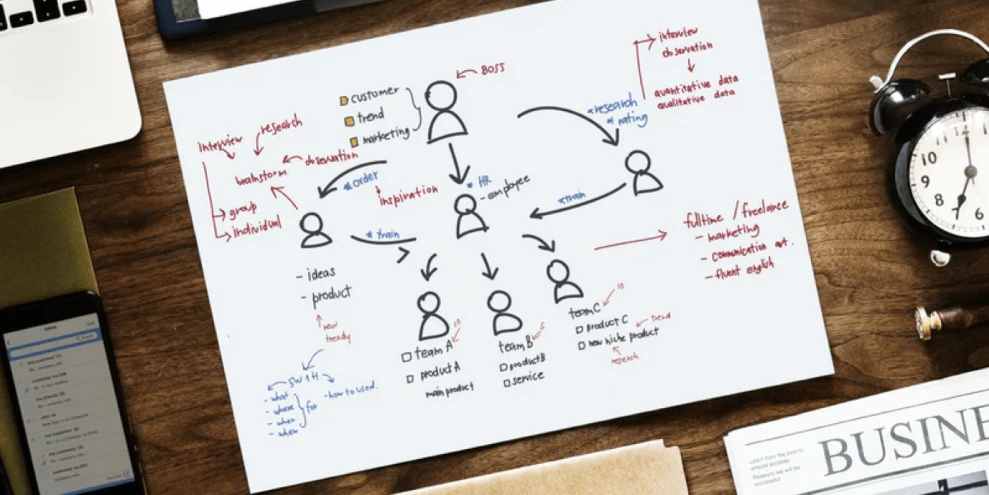 BOSS
customer
trend
marketing
interview
observation
quantitative data
qualitative data
* research
* rating
interview
research
observation
brainstorm
group
individual
* order
inspiration
* HR
- employee
* train
* train
- ideas
- product
new
trendy
5W1H
- what
- where
- when
for
- how to used.
10
team A
product A
main product
5
team B
product B
service
10
team C
product C
trend
new niche product
research
fulltime / freelance
- marketing
- communication art.
- fluent english
12
10
9
8
7
6
BUSINE